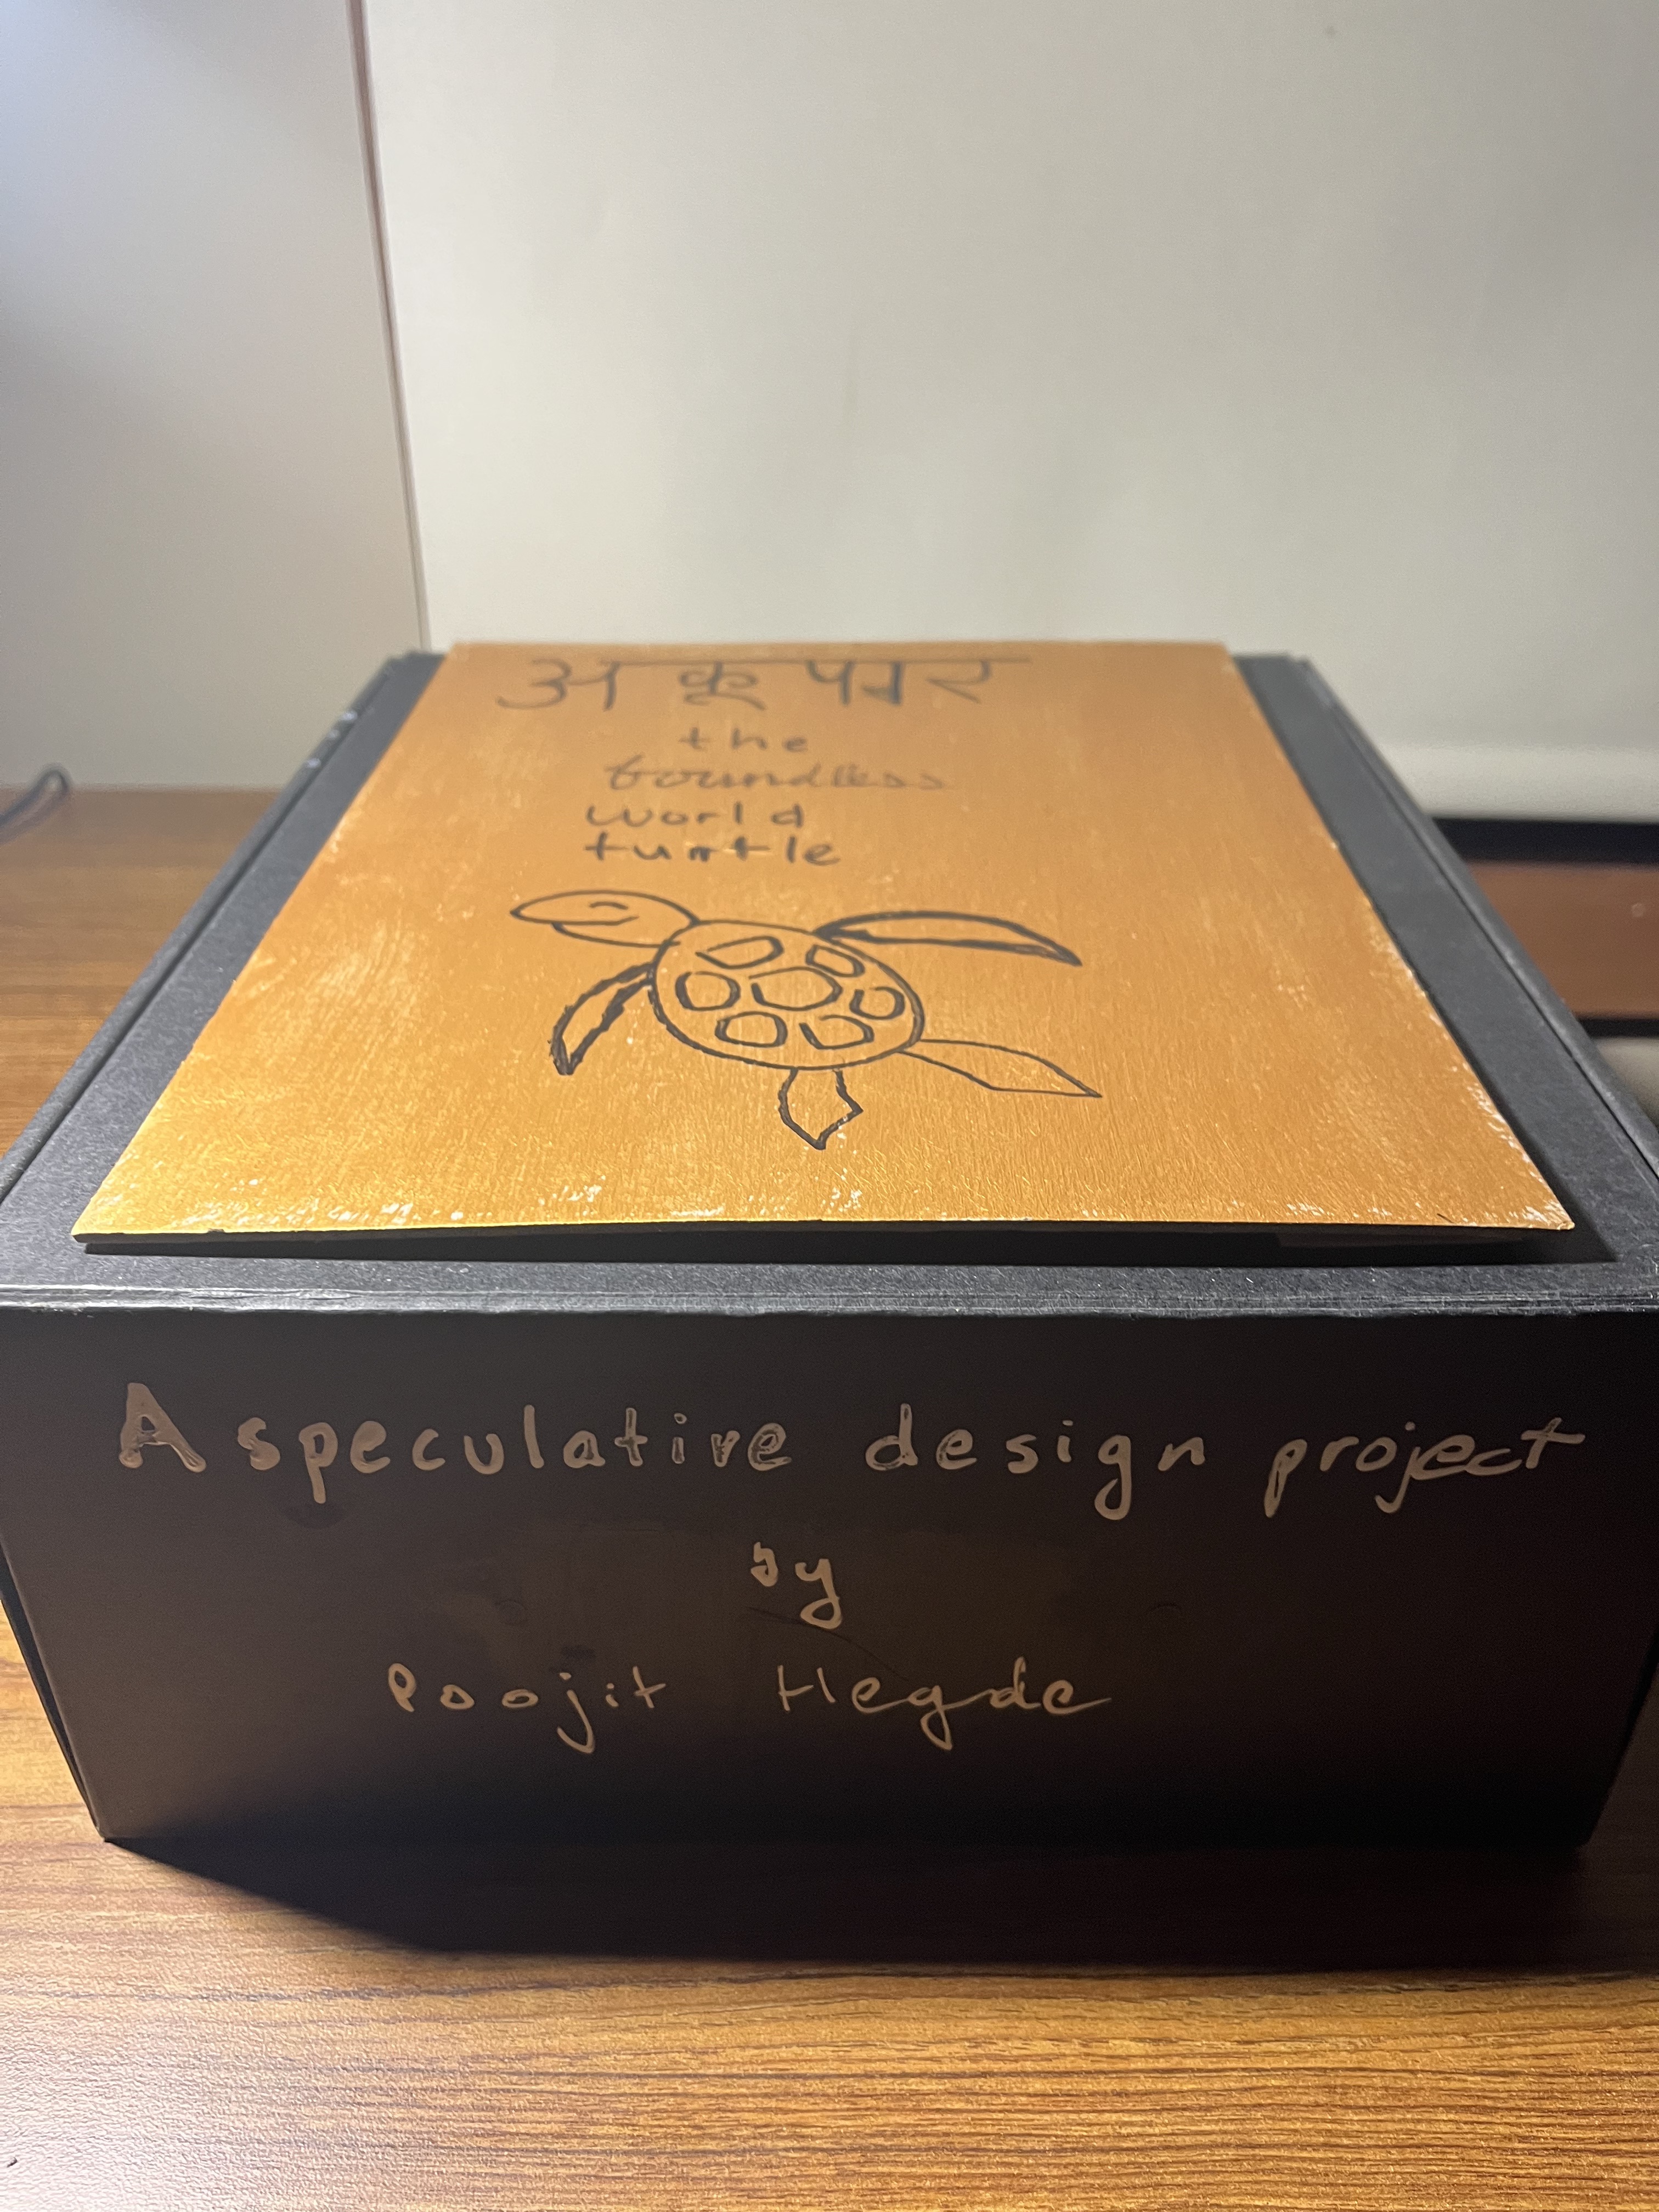 अकूपार
the
boundless
world
turtle
A speculative design project
by
Poojit Hegde